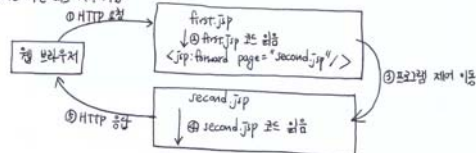 ① HTTP 요청
first.jsp
② first.jsp 코드 읽음
<jsp:forward page="second.jsp"/>
웹 브라우저
③ 프로그램 제어 이동
second.jsp
④ second.jsp 코드 읽음
⑤ HTTP 응답